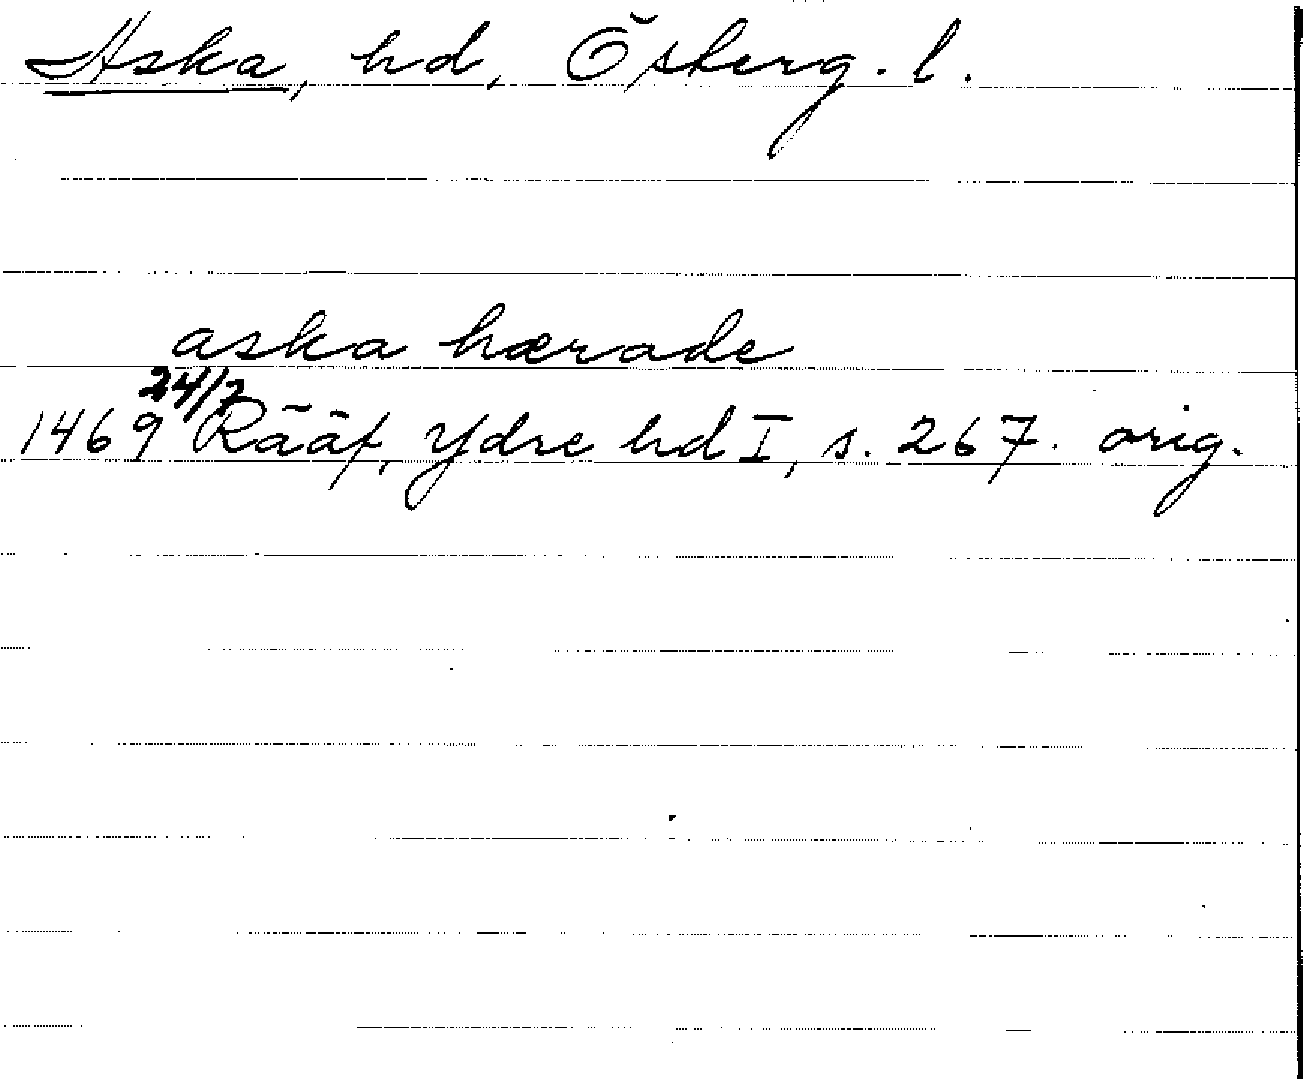 Aska, hd, Österg. l.
aska hærade
24/7
1469 Rääf, Ydre hd I, s. 267. orig.